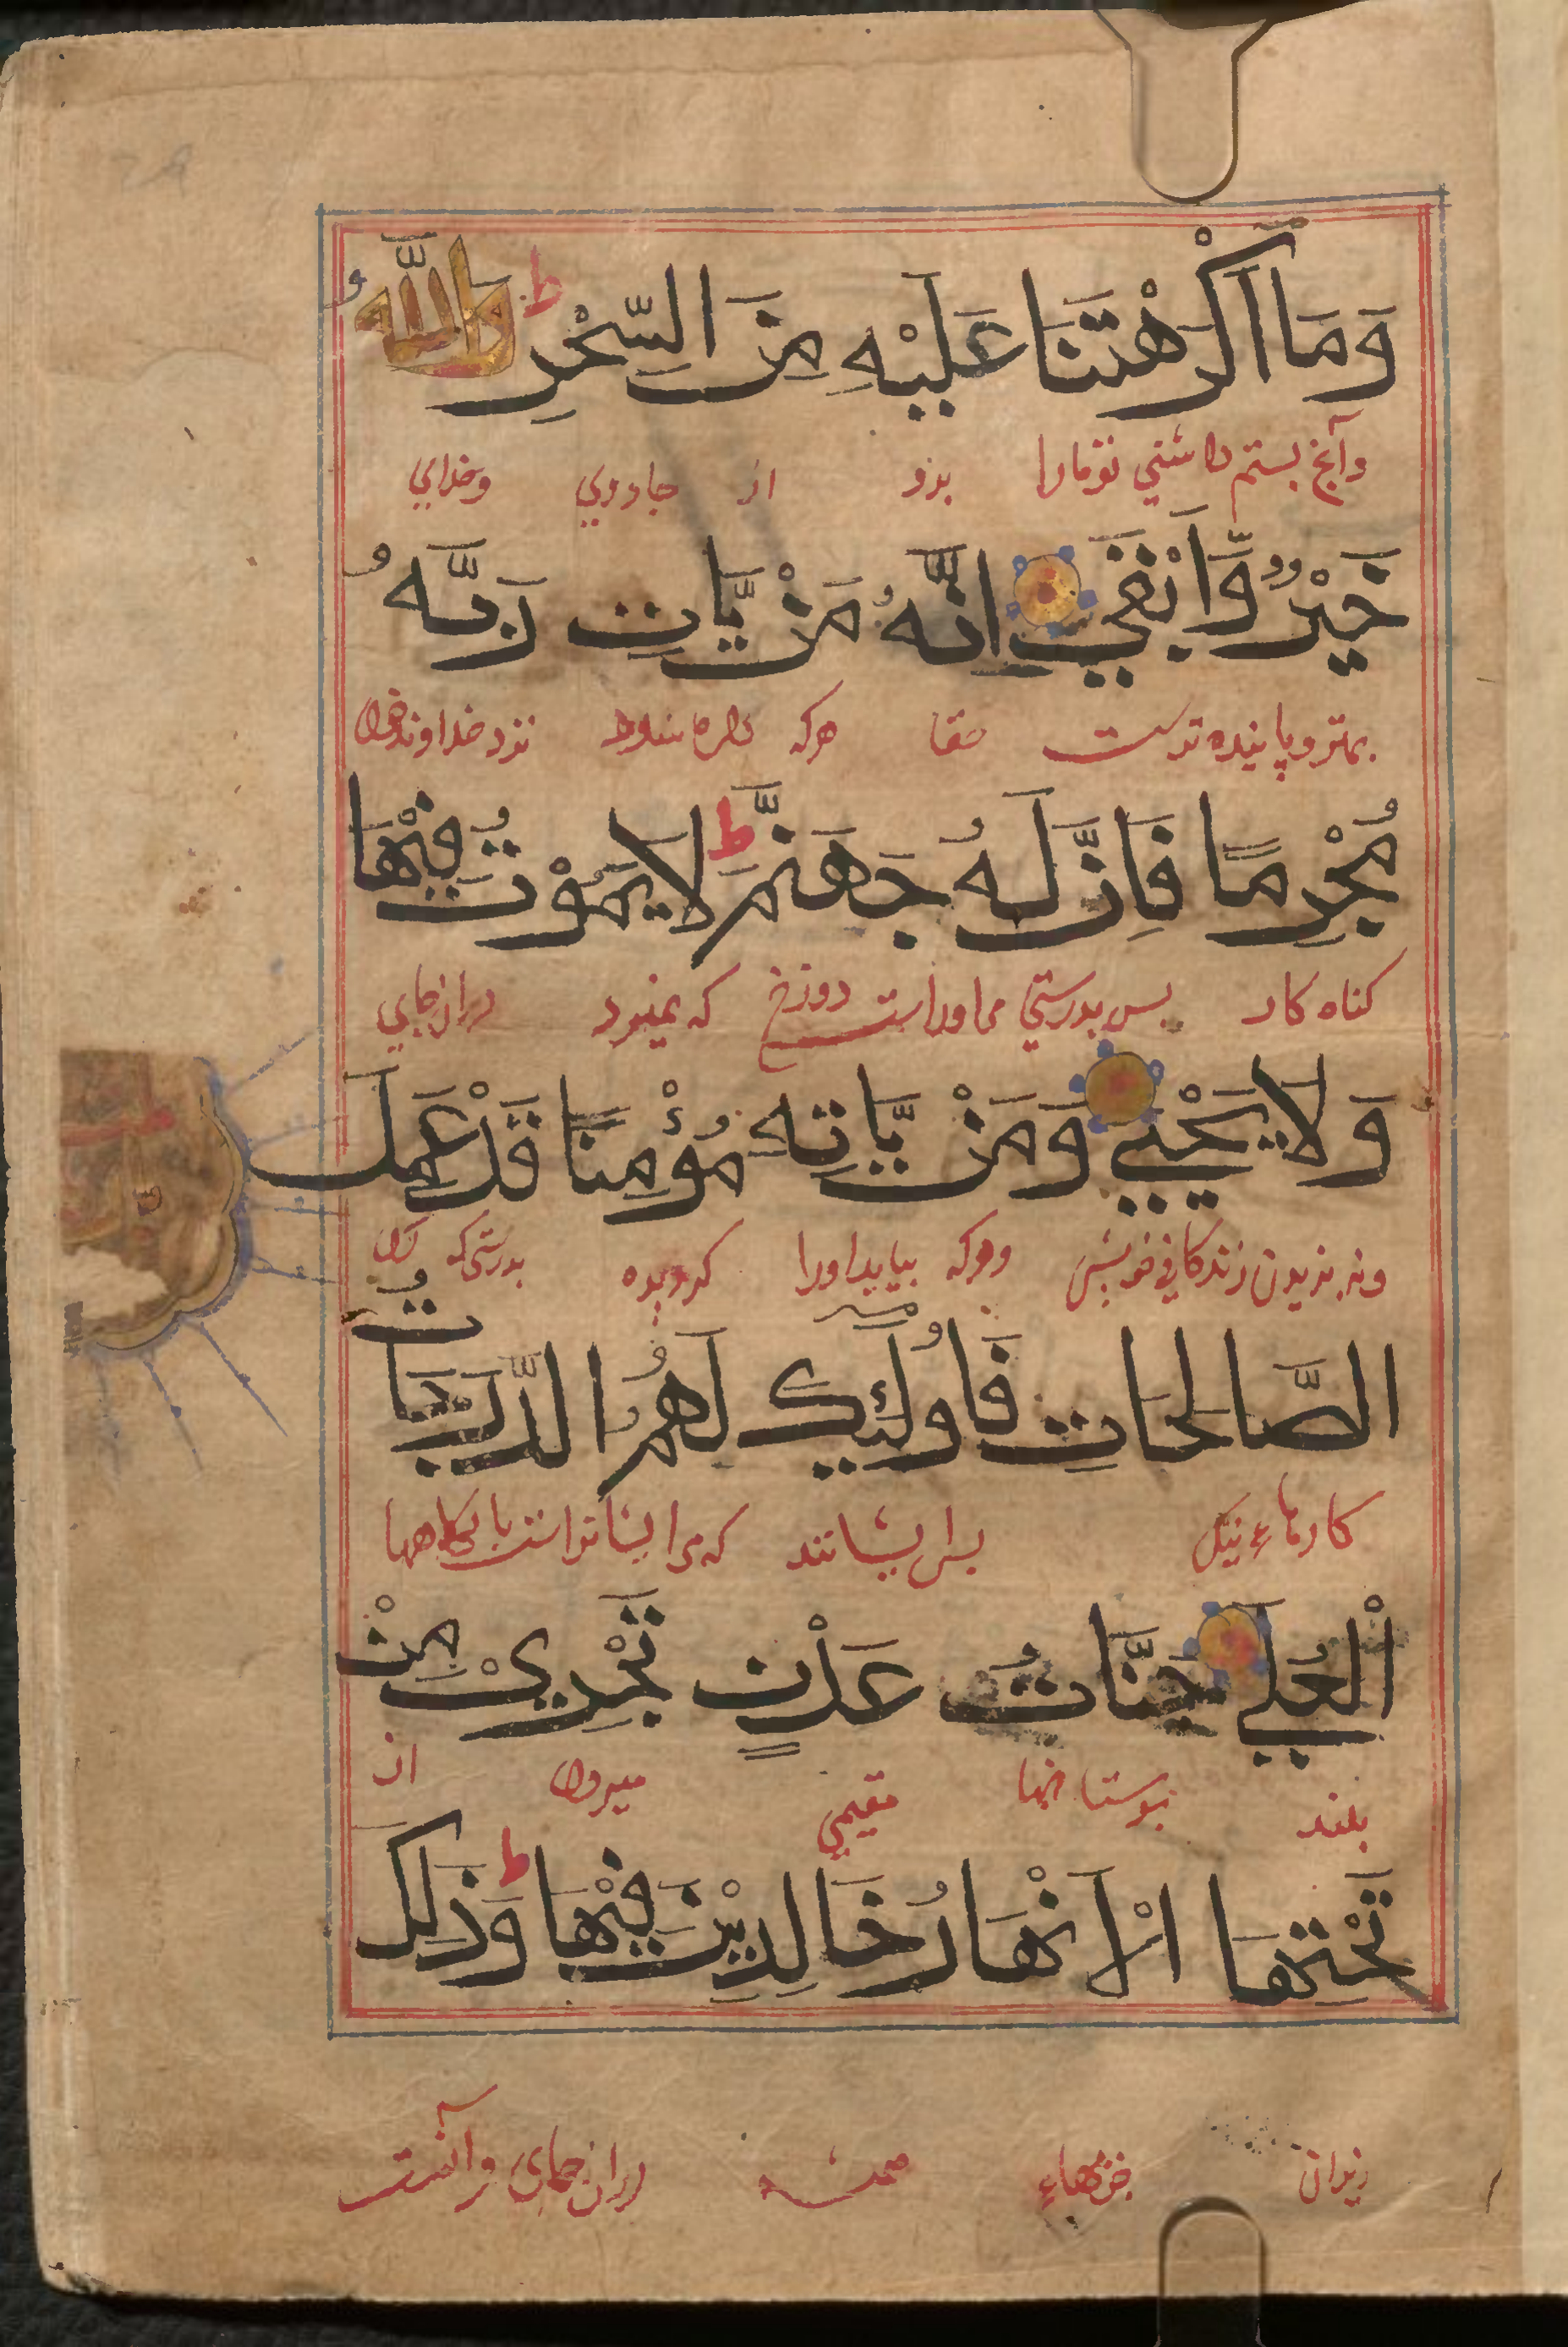 وَمَا اَكْرَهْتَنَا عَلَيْهِ مِنَ السِّحْرِ ط وَاللَّهُ
وآنچ بستم داشتي تو مارا بدو از جادوي وخداي
خَيْرٌ وَّاَبْقٰي اِنَّهُ مَنْ يَّاتِ رَبَّهُ
بهتر و پاينده ترست حقا هركه نزد خداوند خود
مُجْرِمًا فَاِنَّ لَهُ جَهَنَّمَ ط لَا يَمُوْتُ فِيْهَا
كناه كار بس بدرستي مراوراست دوزخ كه نميرد دران جاي
وَلَا يَحْيٰي وَمَنْ يَّاتِهِ مُؤْمِنًا قَدْ عَمِلَ
ونه بزيد زندكاني خويش وهركه بيايد اورا كرويده بدرستي كه
الصَّالِحَاتِ فَاُولٰٓئِكَ لَهُمُ الدَّرَجَاتُ
كارهاء نيك بس ايشانند كه مر ايشانراست بايكاهها
الْعُلٰي جَنَّاتُ عَدْنٍ تَجْرِيْ مِنْ
بلند بوستانها مقيمي ميرود از
تَحْتِهَا الْاَنْهَارُ خَالِدِيْنَ فِيْهَا ط وَذٰلِكَ
زيران دران جاي وآنست